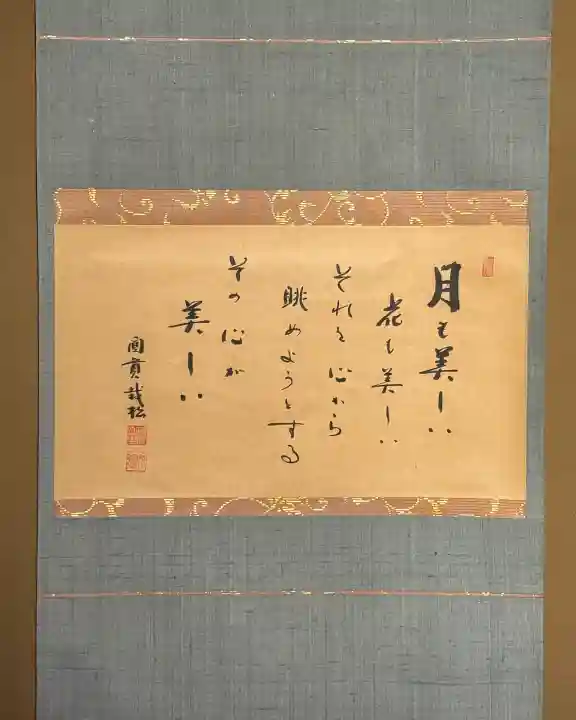 月も美しい
花も美しい
それを心から
眺めようとする
その心が
美しい
圓貫栽松